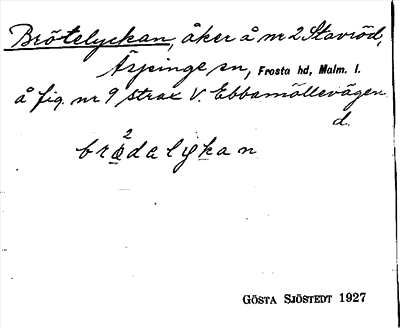 Brötelyckan, åker å nr 2 Staviöd,
Äspinge sn, Frosta hd, Malm. l.
å fig. nr 9 strax V. Ebbamöllevägen
d.
2
brödalykan
GÖSTA SJÖSTEDT 1927